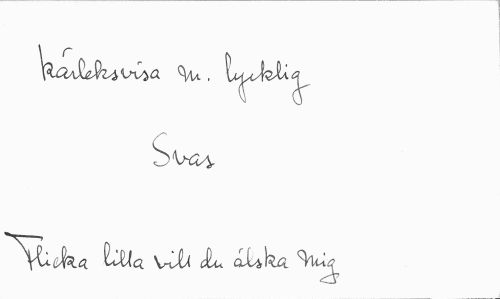 kärleksvisa m. lycklig
Svas
Flicka lilla vill du älska mig